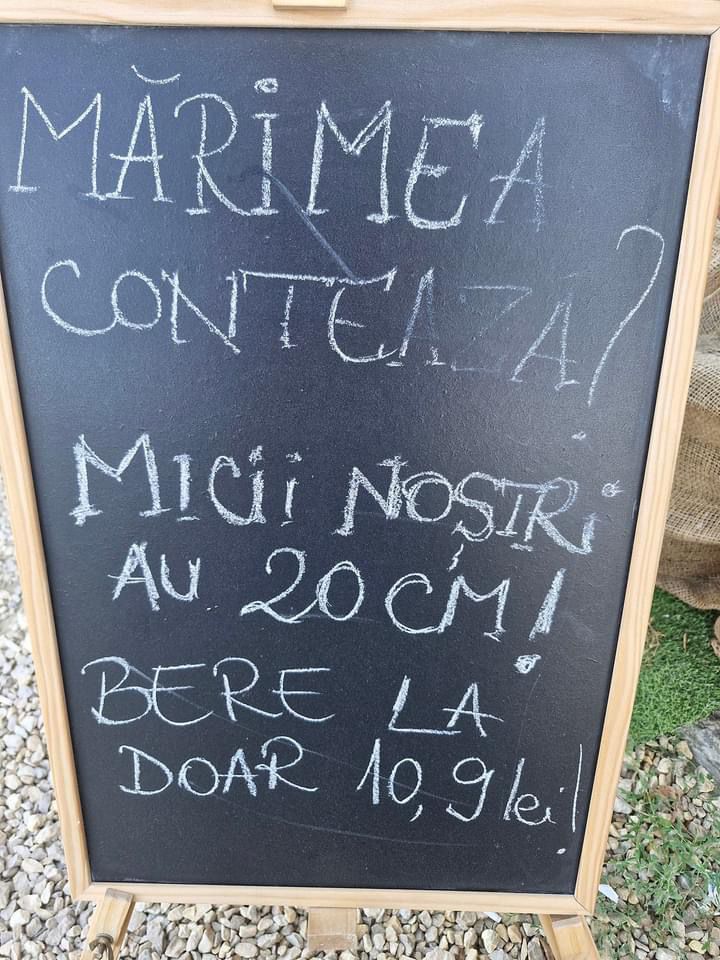 MĂRIMEA
CONTEAZA?
MICII NOȘTRI
AU 20 CM!
BERE LA
DOAR 10,9 lei!